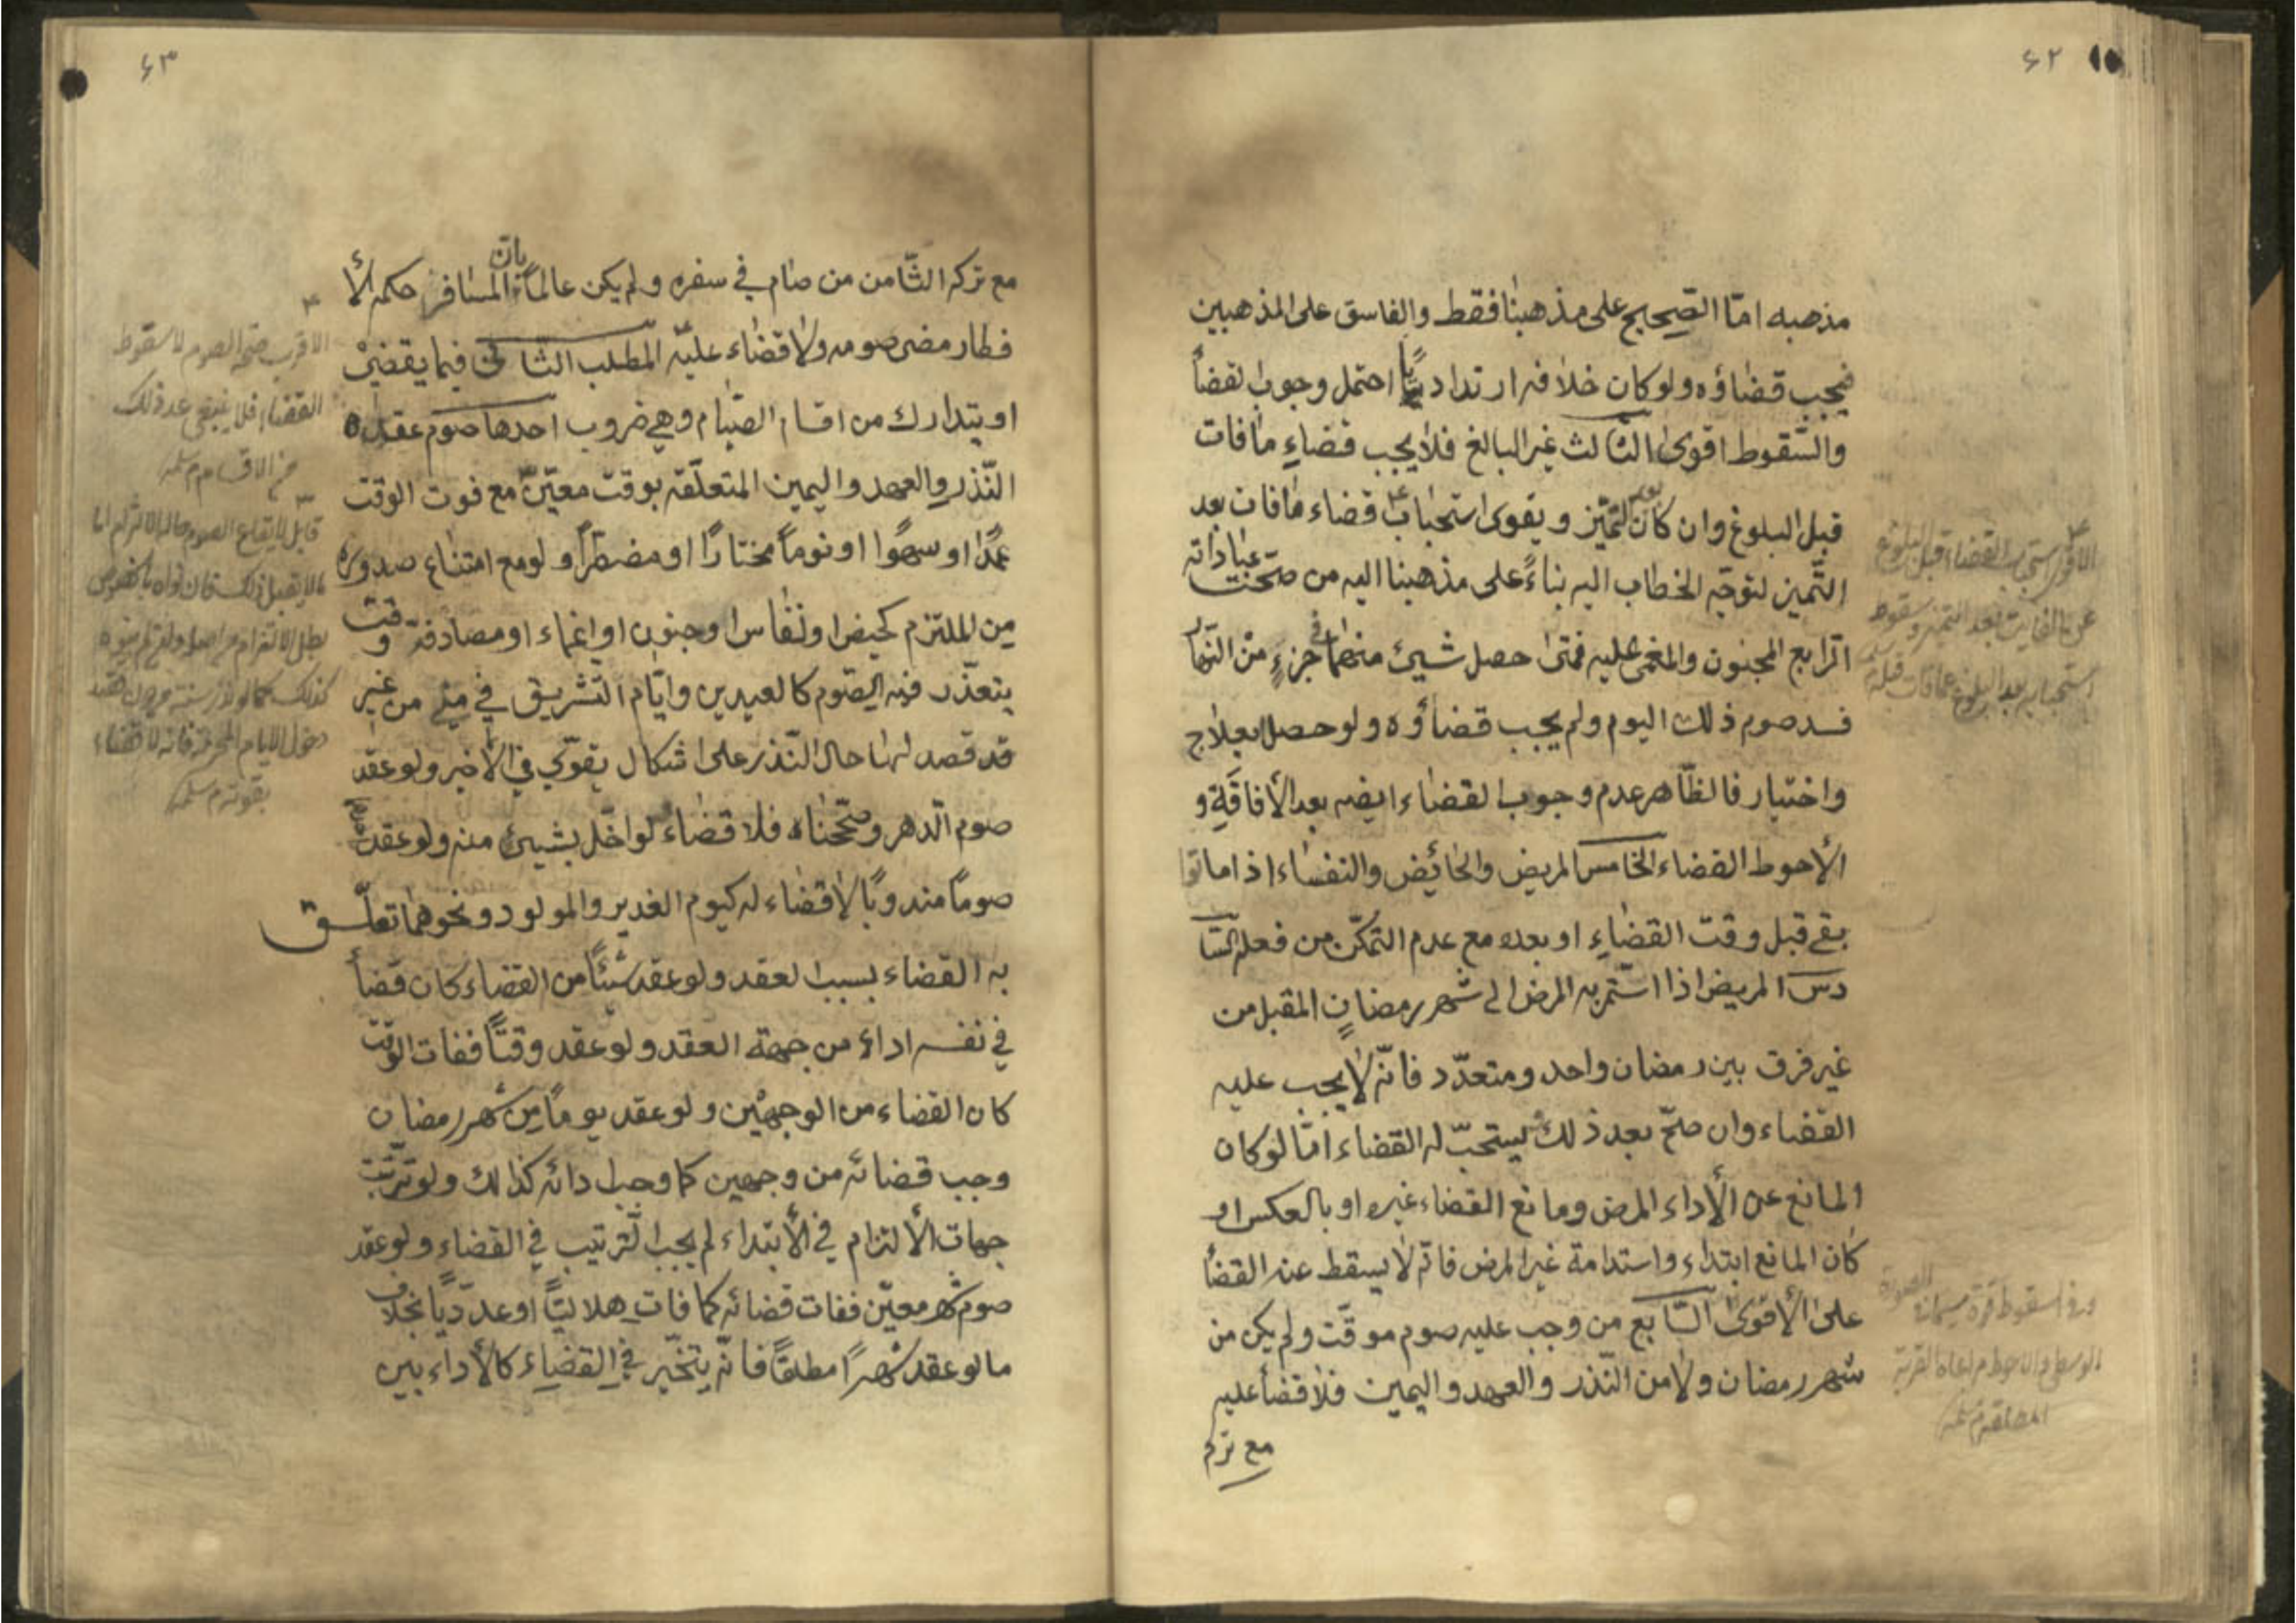 ۶۲
مذهبه امّا الصّحيح على مذهبنا فقط والفاسق على المذهبين
فيجب قضاؤه ولو كان خلافه ارتداديًّا احتمل وجوب القضأ
والسّقوط اقوى الثّالث غير البالغ فلا يجب قضاء ما فات
قبل البلوغ وان كان بعد التميّز ويقوى استحباب قضاء ما فات بعد
التّميز لتوجّه الخطاب اليه بناءً على مذهبنا اليه من صحّت عباداته
الرّابع المجنون والمغمى عليه فمتى حصل شيئ منهما في جزءٍ من النّهار
فسد صوم ذلك اليوم ولم يجب قضاؤه ولو حصل بعلاج
واختيار فالظّاهر عدم وجوب القضاء ايضه بعد الأفاقة و
الأحوط القضاء الخامس المريض والحائض والنفساء اذا ماتوا
بقے قبل وقت القضاء او بعده مع عدم التمكّن من فعله السّا
دس المريض اذا استمرّ به المرض الى شهر رمضان المقبل من
غير فرق بين رمضان واحد ومتعدّد فانّه لا يجب عليه
القضاء وان صحّ بعد ذلك يستحبّ له القضاء امّا لو كان
المانع عن الأداء المرض ومانع القضاء غيره او بالعكس او
كان المانع ابتداء واستدامة غير المرض فانّه لا يسقط عنه القضأ
على الأقوى السّابع من وجب عليه صوم موقّت ولم يكن من
شهر رمضان ولا من النّذر والعهد واليمين فلا قضأ عليه
مع تركه
الاقوى استحباب القضاء قبل البلوغ
عن الفايت بعد التميز وسقوط
استحبابه بعد البلوغ عما فات قبله
وفي السقوط قوة سيما في الصورة
الوسطى والاحوط مراعاة القربة
المطلقة
۶۳
مع تركه الثّامن من صام في سفره ولم يكن عالماً بانّ المسافر حكمه الأ
فطار مضى صومه ولا قضاء عليه المطلب الثّاني فيما يقضى
او يتدارك من اقسام الصّيام وهي ضروب احدها صوم عقده
النّذر والعهد واليمين المتعلّقه بوقت معيّن مع فوت الوقت
عمدًا او سهوًا او نوماً مختارًا او مضطرًّا ولو مع امتناع صدوره
من الملتزم كحيض او نفاس او جنون او اغماء او مصادفة وقت
يتعذّر فيه الصّوم كالعيدين وايّام التّشريق في منى من غير
قد قصد لها حال النّذر على اشكال يقوّي في الأخير ولو عقد
صوم الدّهر وصحّحناه فلا قضاء لو اخلّ بشيئ منه ولو عقد
صوماً مندوبًا لا قضاء له كيوم الغدير والمولود ونحوهما تعلّق
به القضاء بسبب العقد ولو عقد شيئًا من القضاء كان قضأ
في نفسه اداء من جهة العقد ولو عقد وقتًا ففات الوقت
كان القضاء من الوجهين ولو عقد يوماً من شهر رمضان
وجب قضائه من وجهين كما وجب ادائه كذلك ولو ترتّبت
جهات الألتزام في الأبتداء لم يجب التّرتيب في القضاء ولو عقد
صوم شهر معيّن ففات قضائه كما فات هلاليًّا او عدديًّا بخلاف
ما لو عقد شهرًا مطلقًا فانّه يتخيّر في القضاء كالأداء بين
الاقرب صحة الصوم لا سقوط
القضاء فلا ينبغي عد ذلك
من الاقسام
قابل لايقاع الصوم حال الالتزام اما
ما لا يقبل ذلك فان نواه بالخصوص
بطل الالتزام من اصله ولو لم ينوه
كذلك كما لو نذر سنة من دون قصد
دخول الايام المحرمة فانه لا قضاء